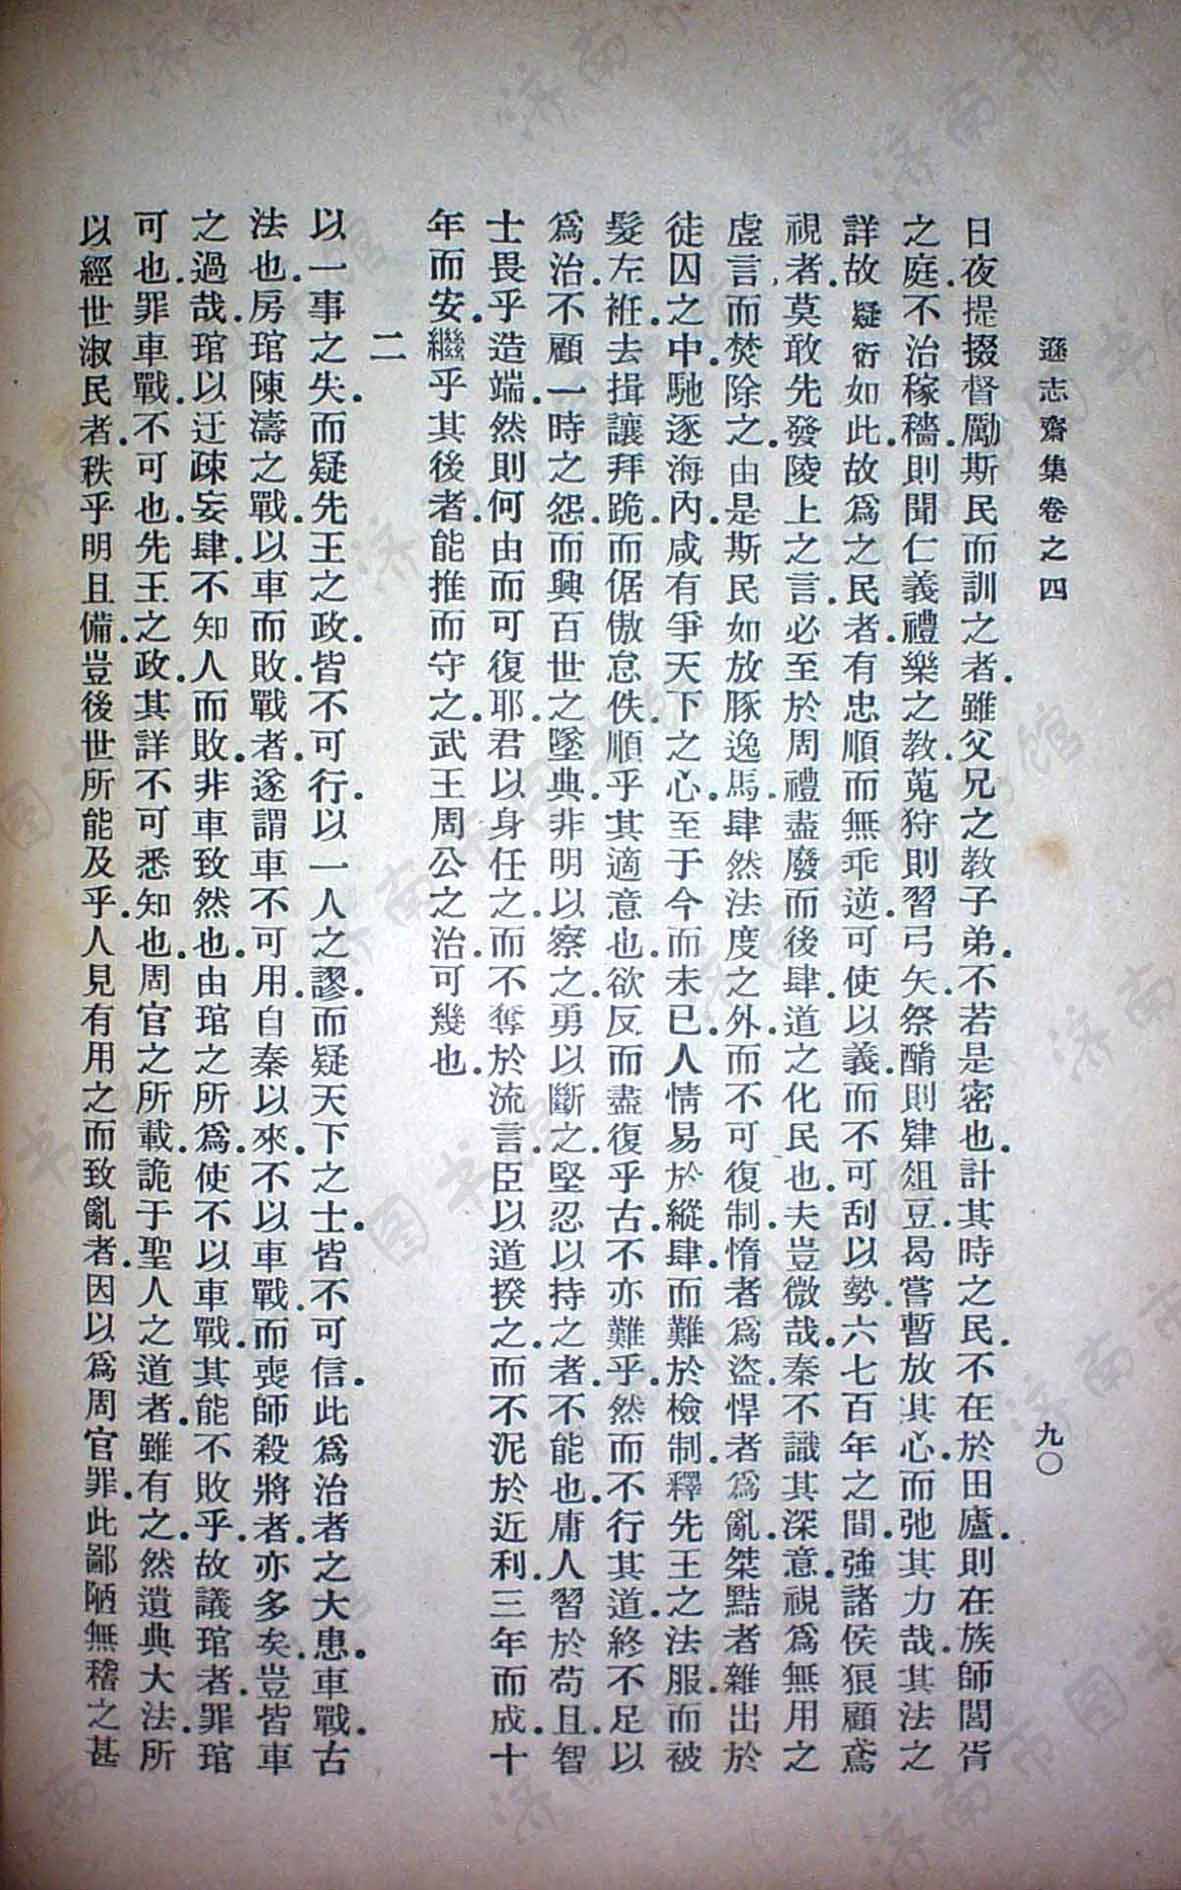 遜志齋集卷之四
九〇
日夜提掇督勵斯民而訓之者.雖父兄之教子弟.不若是密也.計其時之民.不在於田廬.則在族師閭胥
之庭.不治稼穡.則聞仁義禮樂之教.蒐狩則習弓矢.祭酺則肄俎豆.曷嘗暫放其心.而弛其力哉.其法之
詳故疑衍如此.故爲之民者.有忠順而無乖逆.可使以義.而不可刮以勢.六七百年之間.強諸侯狠顧鳶
視者.莫敢先發陵上之言.必至於周禮盡廢而後肆.道之化民也.夫豈微哉.秦不識其深意.視爲無用之
虛言而焚除之.由是斯民如放豚逸馬.肆然法度之外.而不可復制.惰者爲盜.悍者爲亂.桀黠者雜出於
徒囚之中.馳逐海內.咸有爭天下之心.至于今而未已.人情易於縱肆.而難於檢制.釋先王之法服.而被
髮左袵.去揖讓拜跪.而倨傲怠佚.順乎其適意也.欲反而盡復乎古.不亦難乎.然而不行其道.終不足以
爲治.不顧一時之怨.而興百世之墜典.非明以察之.勇以斷之.堅忍以持之者.不能也.庸人習於苟且.智
士畏乎造端.然則何由而可復耶.君以身任之.而不奪於流言.臣以道揆之.而不泥於近利.三年而成.十
年而安.繼乎其後者.能推而守之.武王周公之治.可幾也.
二
以一事之失.而疑先王之政.皆不可行.以一人之謬.而疑天下之士.皆不可信.此爲治者之大患.車戰.古
法也.房琯陳濤之戰.以車而敗.戰者.遂謂車不可用.自秦以來.不以車戰.而喪師殺將者.亦多矣.豈皆車
之過哉.琯以迂疎妄肆.不知人而敗.非車致然也.由琯之所爲.使不以車戰.其能不敗乎.故議琯者.罪琯
可也.罪車戰.不可也.先王之政.其詳不可悉知也.周官之所載.詭于聖人之道者.雖有之.然遺典大法.所
以經世淑民者.秩乎明且備.豈後世所能及乎.人見有用之而致亂者.因以爲周官罪.此鄙陋無稽之甚